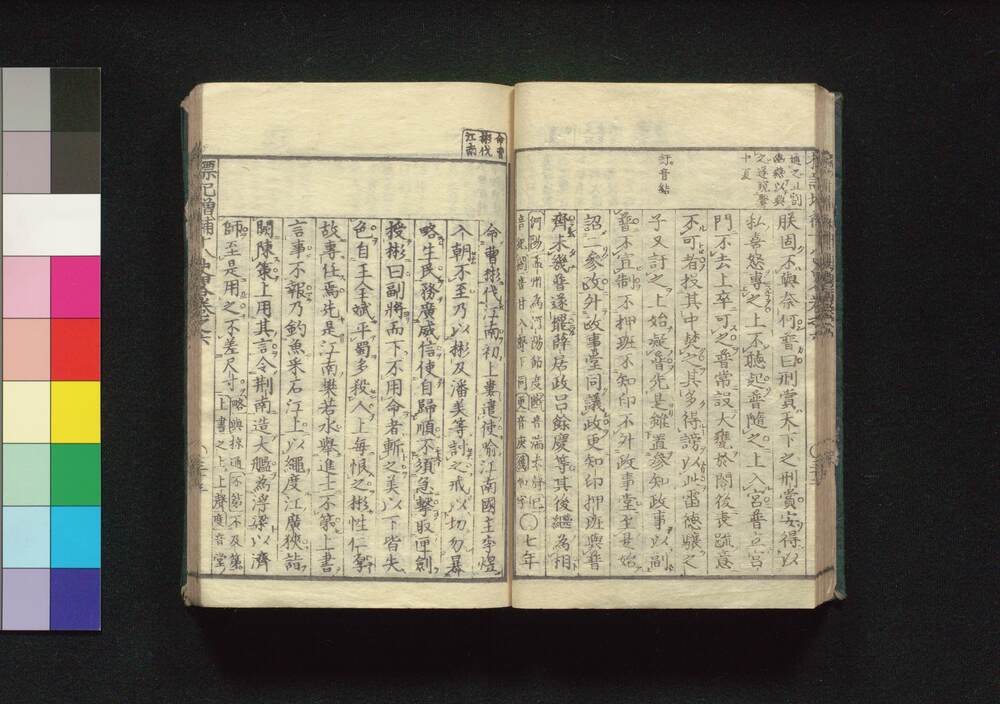 朕固不與奈何普曰刑賞天下之刑賞安得以
私喜怒專之上不聽起普隨之上入宮普立宮
門不去上卒可之普常設大甕於閤後表疏意
不可者投其中焚之其多得謗以此雷德驤之
子又訐之上始疑普先是雖置參知政事以副
普不宣制不押班不知印不升政事堂至是始
詔二參政升政事堂同議政更知印押班與普
齊未幾普遂罷薛居政呂餘慶等其後繼為相
七年
訐音結
命曹彬伐江南
命曹彬伐江南初上屢遣使喻江南國主李煜
入朝不至乃以彬及潘美等討之戒以切勿暴
略生民務廣威信使自歸順不須急擊取匣劍
授彬曰副將而下不用命者斬之美以下皆失
色自王全斌平蜀多殺人上每恨之彬性仁厚
故專任焉先是江南樊若水舉進士不第上書
言事不報乃釣魚采石江上以繩度江廣狹詣
闕陳策上用其言令荊南造大艦為浮梁以濟
師至是用之不差尺寸
標記增補十八史略卷之六